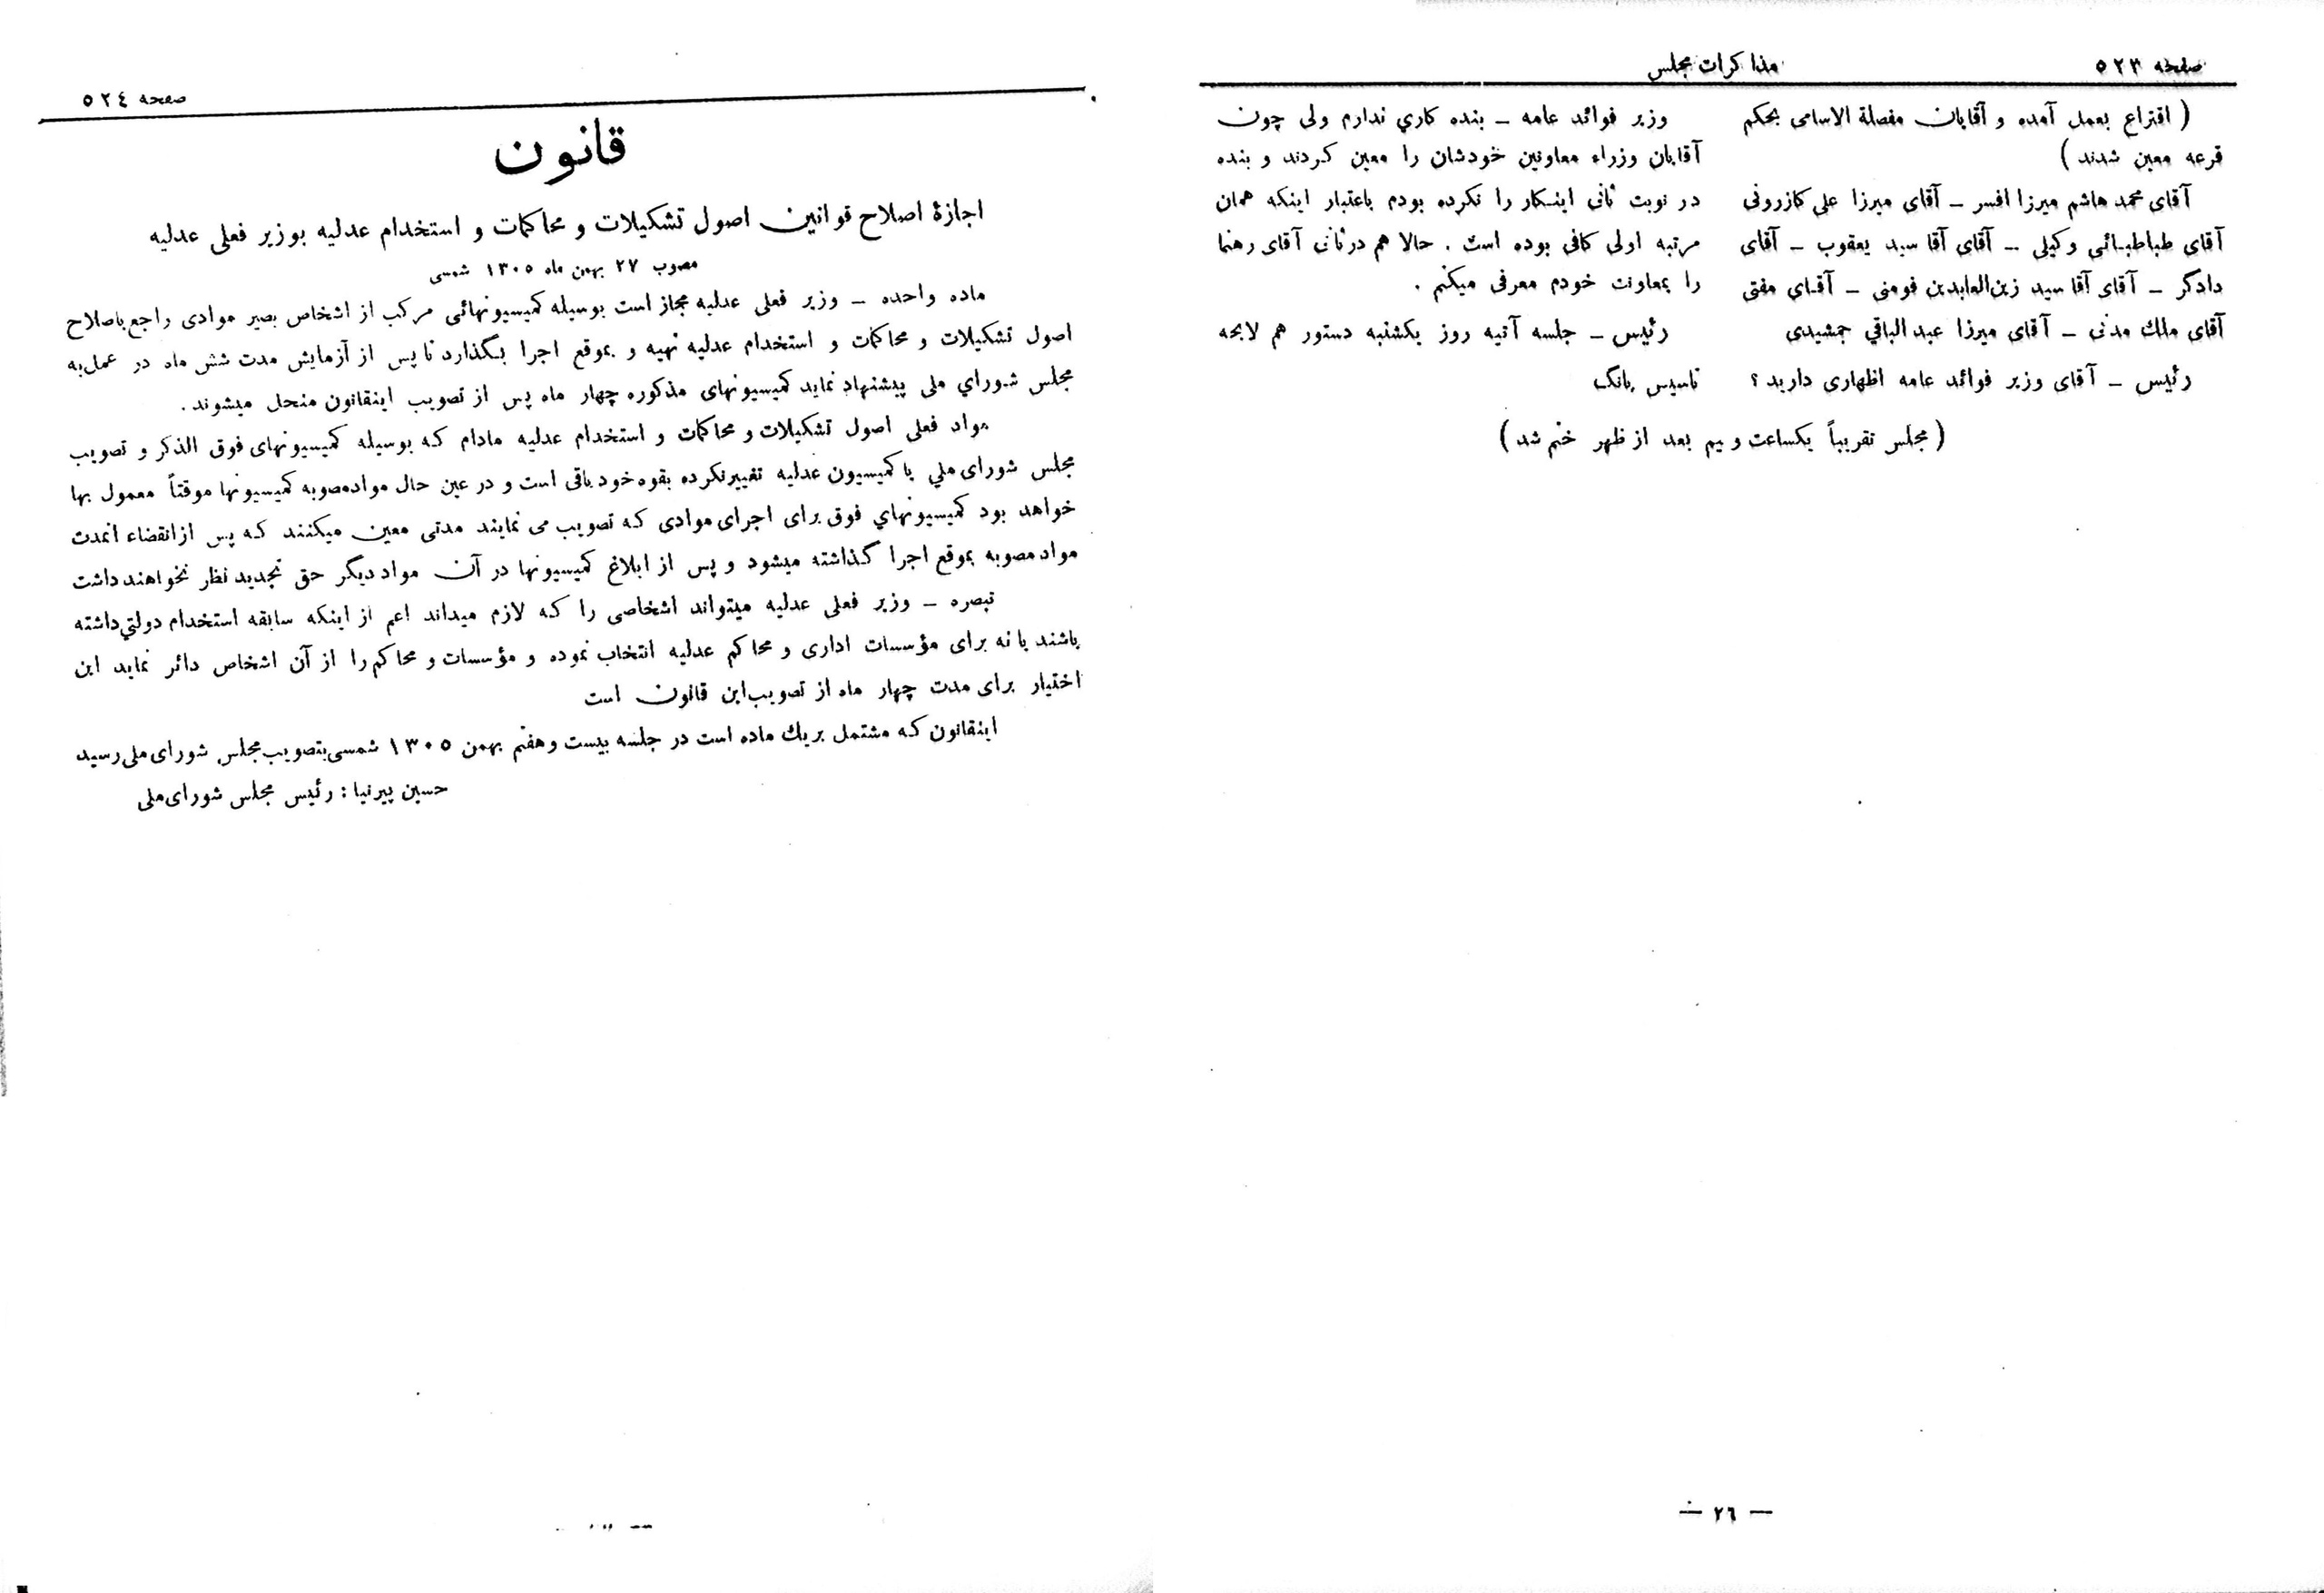 صفحه ٥٢٣
مذاکرات مجلس
( اقتراع بعمل آمده و آقایان مفصلة الاسامی بحکم
قرعه معین شدند )
آقای محمد هاشم میرزا افسر ـ آقای میرزا علی کازرونی
آقای طباطبائی وکیلی ـ آقای آقا سید یعقوب ـ آقای
دادگر ـ آقای آقا سید زین‌العابدین فومنی ـ آقای مفتی
آقای ملك مدنی ـ آقای میرزا عبدالباقي جمشیدی
رئیس ـ آقای وزیر فوائد عامه اظهاری دارید ؟
وزیر فوائد عامه ـ بنده کاري ندارم ولی چون
آقایان وزراء معاونین خودشان را معین کردند و بنده
در نوبت ثانی اینکار را نکرده بودم باعتبار اینکه همان
مرتبه اولی کافی بوده است . حالا هم درثانی آقای رهنما
را بمعاونت خودم معرفی میکنم .
رئیس ـ جلسه آتیه روز یکشنبه دستور هم لایحه
تاسیس بانك
( مجلس تقریباً یکساعت و نیم بعد از ظهر ختم شد )
ـ ٢٦ ـ
صفحه ٥٢٤
قانون
اجازهٔ اصلاح قوانین اصول تشکیلات و محاکمات و استخدام عدلیه بوزیر فعلی عدلیه
مصوب ٢٧ بهمن ماه ١٣٠٥ شمسی
ماده واحده ـ وزیر فعلی عدلیه مجاز است بوسیله کمیسیونهائی مرکب از اشخاص بصیر موادی راجع باصلاح
اصول تشکیلات و محاکمات و استخدام عدلیه تهیه و بموقع اجرا بگذارد تا پس از آزمایش مدت شش ماه در عمل به
مجلس شوراي ملی پیشنهاد نماید کمیسیونهای مذکوره چهار ماه پس از تصویب اینقانون منحل میشوند .
مواد فعلی اصول تشکیلات و محاکمات و استخدام عدلیه مادام که بوسیله کمیسیونهای فوق الذکر و تصویب
مجلس شورای ملي یا کمیسیون عدلیه تغییر نکرده بقوه خود باقی است و در عین حال مواد مصوبه کمیسیونها موقتاً معمول بها
خواهد بود کمیسیونهاي فوق برای اجرای موادی که تصویب می نمایند مدتی معین میکنند که پس از انقضاء انمدت
مواد مصوبه بموقع اجرا گذاشته میشود و پس از ابلاغ کمیسیونها در آن مواد دیگر حق تجدید نظر نخواهند داشت
تبصره ـ وزیر فعلی عدلیه میتواند اشخاصی را که لازم میداند اعم از اینکه سابقه استخدام دولتي داشته
باشند یا نه برای مؤسسات اداری و محاکم عدلیه انتخاب نموده و مؤسسات و محاکم را از آن اشخاص دائر نماید این
اختیار برای مدت چهار ماه از تصویب این قانون است
اینقانون که مشتمل بریك ماده است در جلسه بیست و هفتم بهمن ١٣٠٥ شمسی بتصویب مجلس شورای ملی رسید
حسین پیرنیا : رئیس مجلس شورای ملی